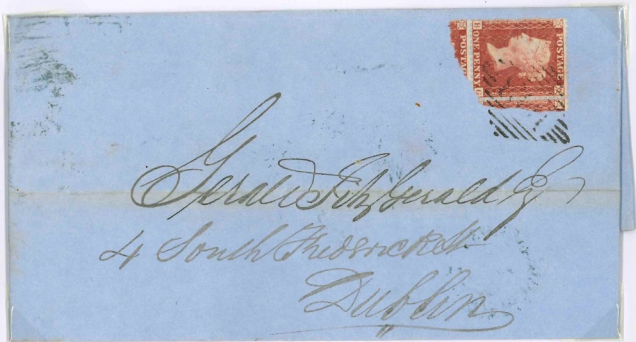 POSTAGE
ONE PENNY
Gerald FitzGerald Esq
4 South Frederick St
Dublin